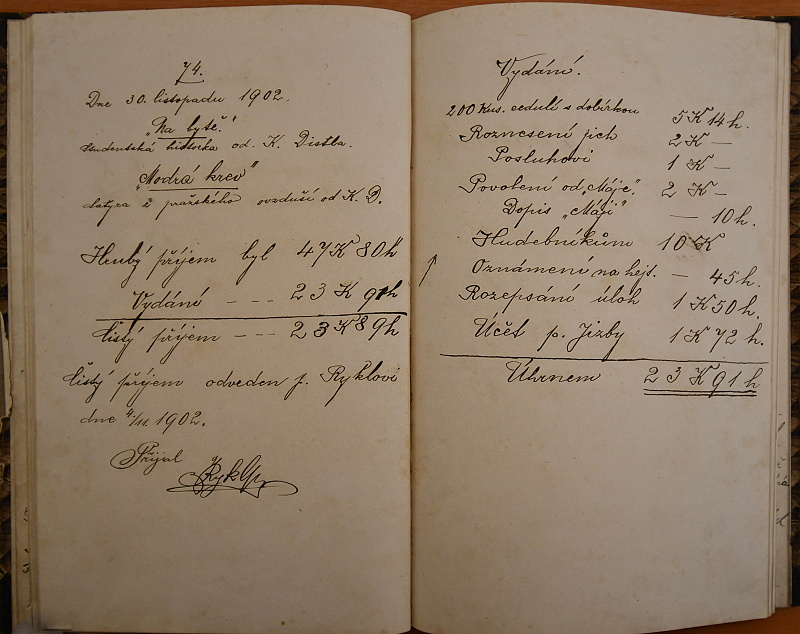 74.
Dne 30. listopadu 1902.
„Na bytě."
Studentská historka od. K. Distla.
„Modrá krev"
Satyra z pražského ovzduší od K. D.
Hrubý příjem byl 47K 80h
Vydání - - - 23 K 91h
Čistý příjem - - - 23K 89h
Čistý příjem odveden p. Ryklovi
dne 4./12. 1902.
Přijal
Vydání.
200 kus. cedulí s dobírkou 5K 14h.
Roznesení jich 2K —
Posluhovi 1K —
Povolení od „Máje" 2K —
Dopis „Máji" — 10h.
Hudebníkům 10K
Oznámení na hejt. — 45h.
Rozepsání úloh 1K 50h.
Účet p. Jizby 1K 72h.
Úhrnem 23K 91h